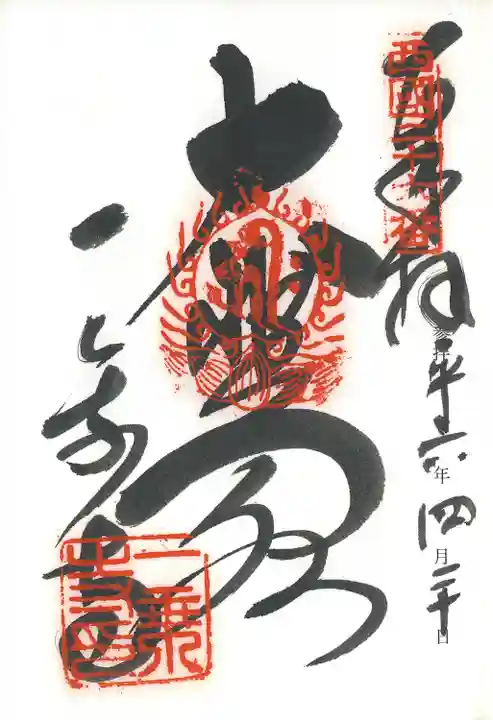 奉拝
西國二十六番
参拝 平六年四月二十日
大悲閣
一乗寺
一乗寺印